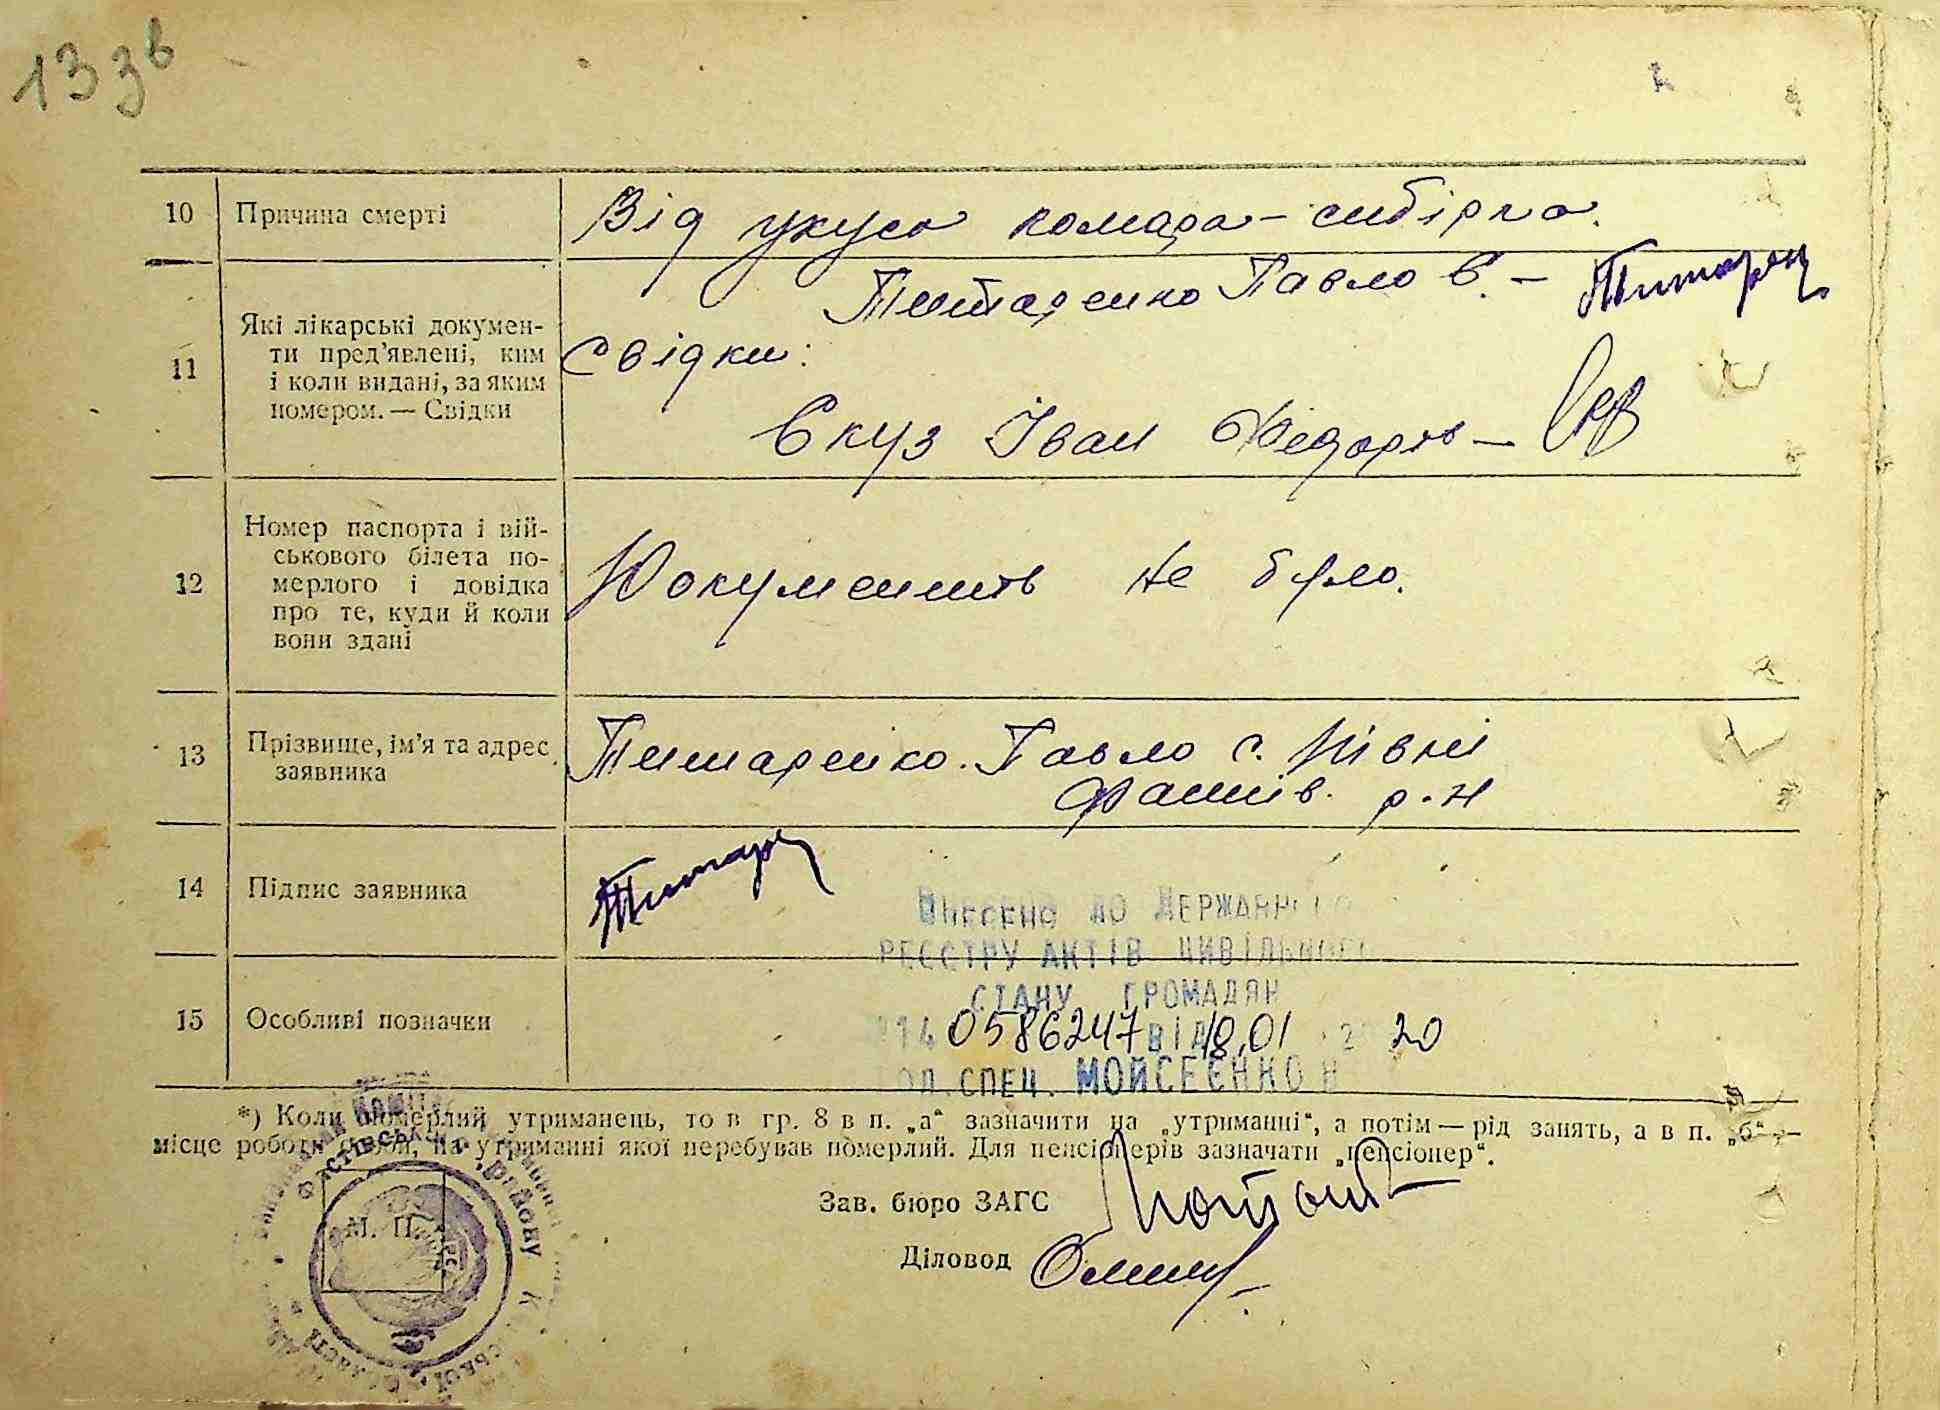 13 зв
10 Причина смерті Від укуса комара - сибірка.
11 Які лікарські докумен-
ти пред'явлені, ким
і коли видані, за яким
номером. — Свідки
Титаренко Павло Є. –
Свідки:
Скуз Іван Федоров –
12 Номер паспорта і вій-
ськового білета по-
мерлого і довідка
про те, куди й коли
вони здані
Документів не було.
13 Прізвище, ім'я та адрес
заявника
Титаренко Павло с. Півні
Фастів. р-н
14 Підпис заявника
15 Особливі позначки
Внесено до Державного
реєстру актів цивільного
стану громадян
0586247 від 18,01 20
СПЕЦ. МОЙСЕЄНКО Н
*) Коли померлий утриманець, то в гр. 8 в п. „а“ зазначити на „утриманні“, а потім — рід занять, а в п. „б“ —
місце роботи особи, на утриманні якої перебував померлий. Для пенсіонерів зазначати „пенсіонер“.
Зав. бюро ЗАГС
Діловод
М. П.